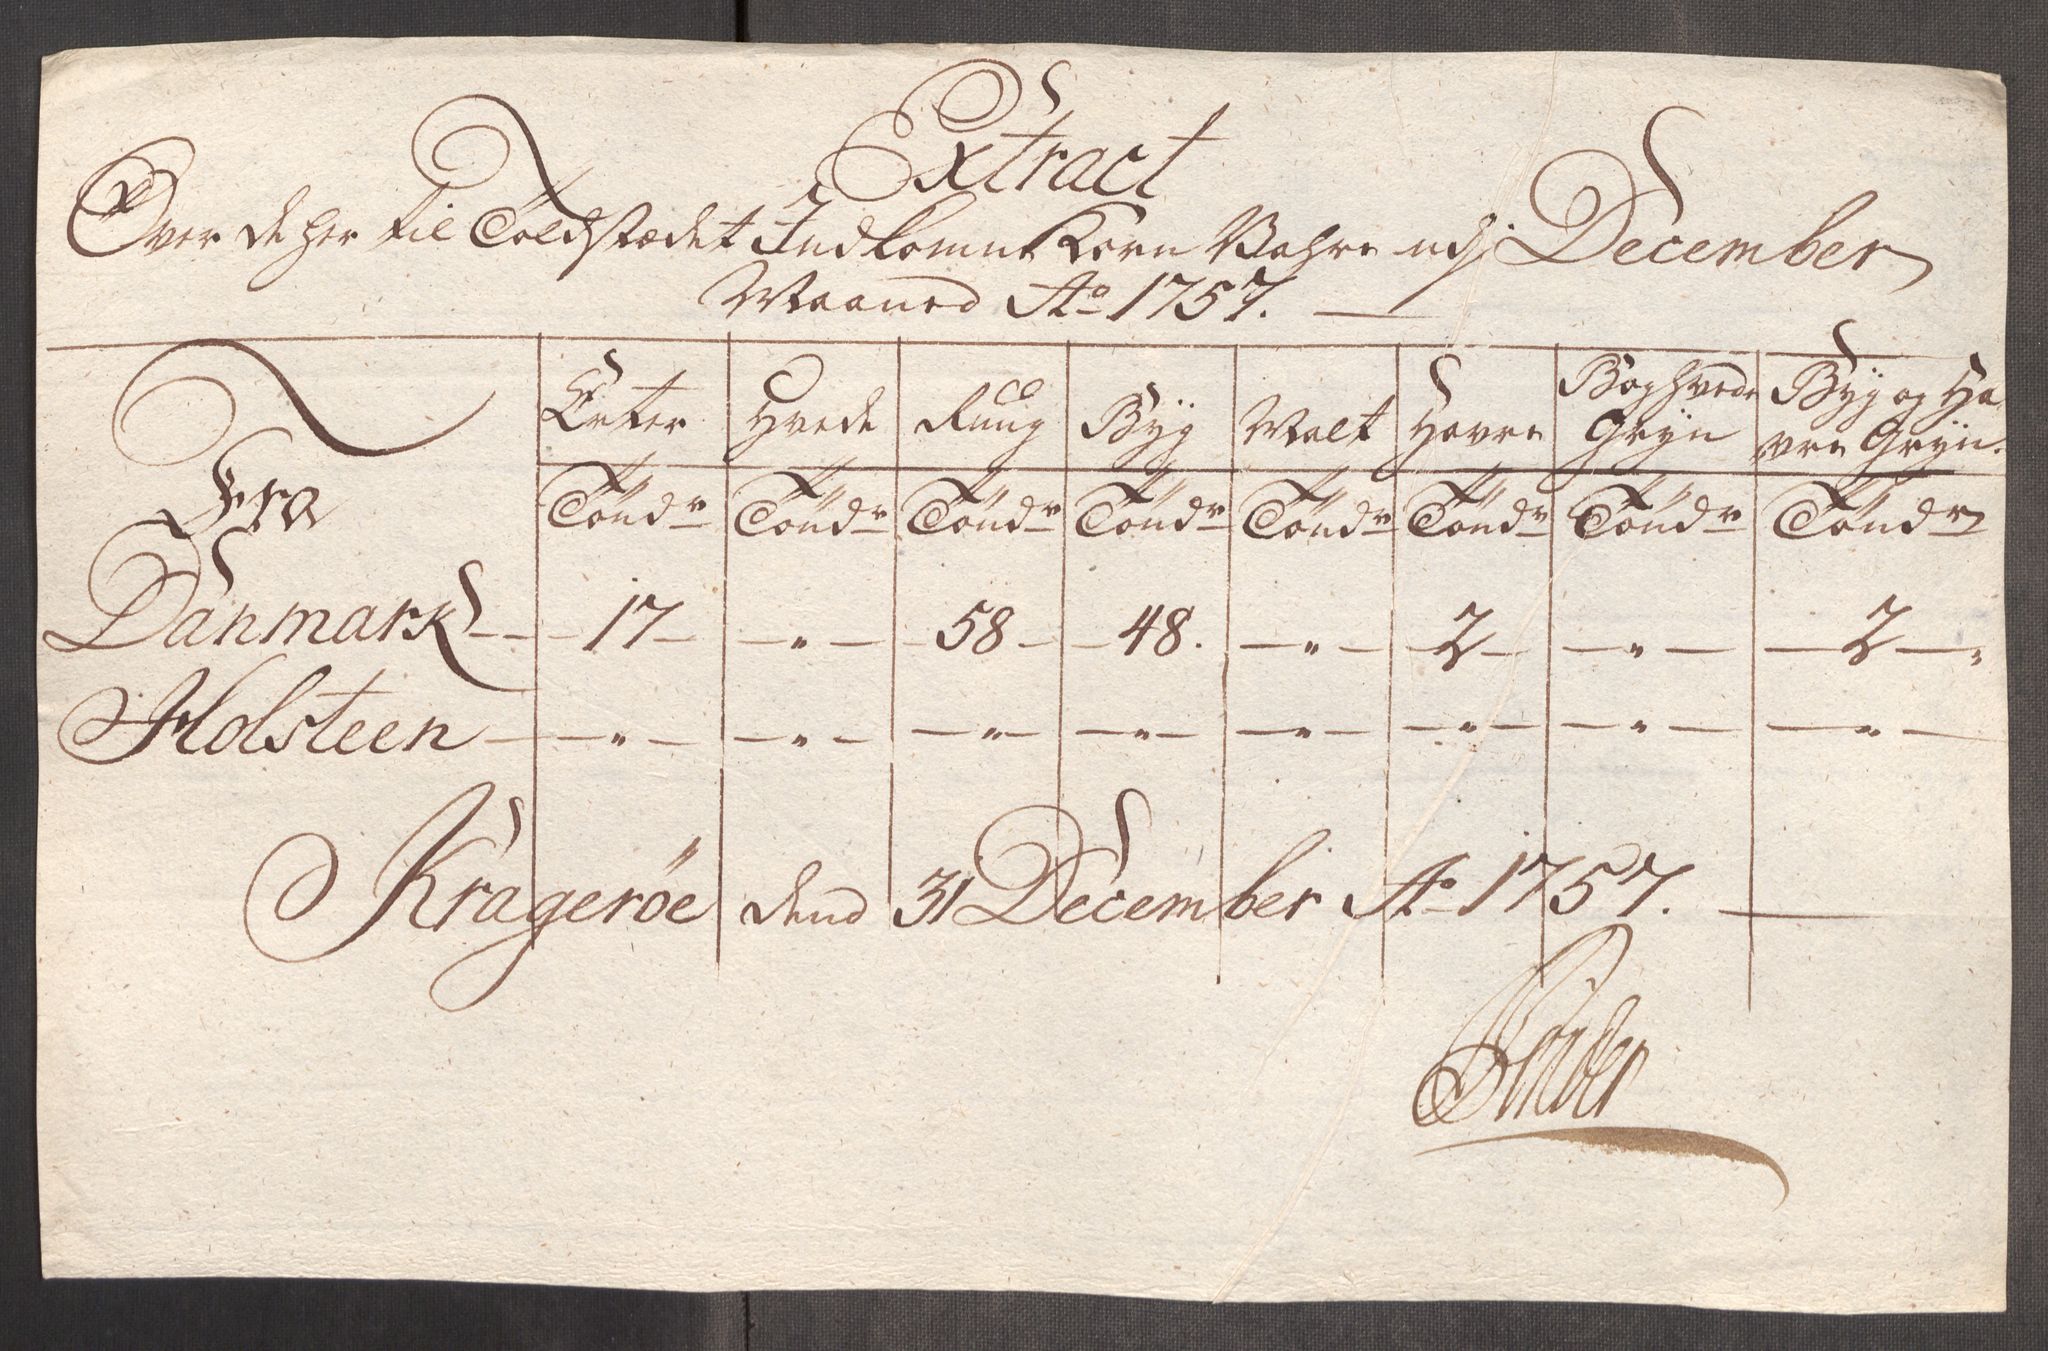 Extract
Over de her til Toldstædet Indkomne Korn Vahre udj December
Maaned Ao 1757.
Fra Erter Hvede Ruug Byg Malt Havre Boghvede Gryn Byg og Havre Gryn.
Töndr Töndr Töndr Töndr Töndr Töndr Töndr Töndr
Danmark - 17 - - " - 58 - 48. - " - 2 - - " - 2 - "
Holsteen - " - - " - - " - - " - - " - - " - - " - - " -
Kragerøe dend 31 December Ao 1757.